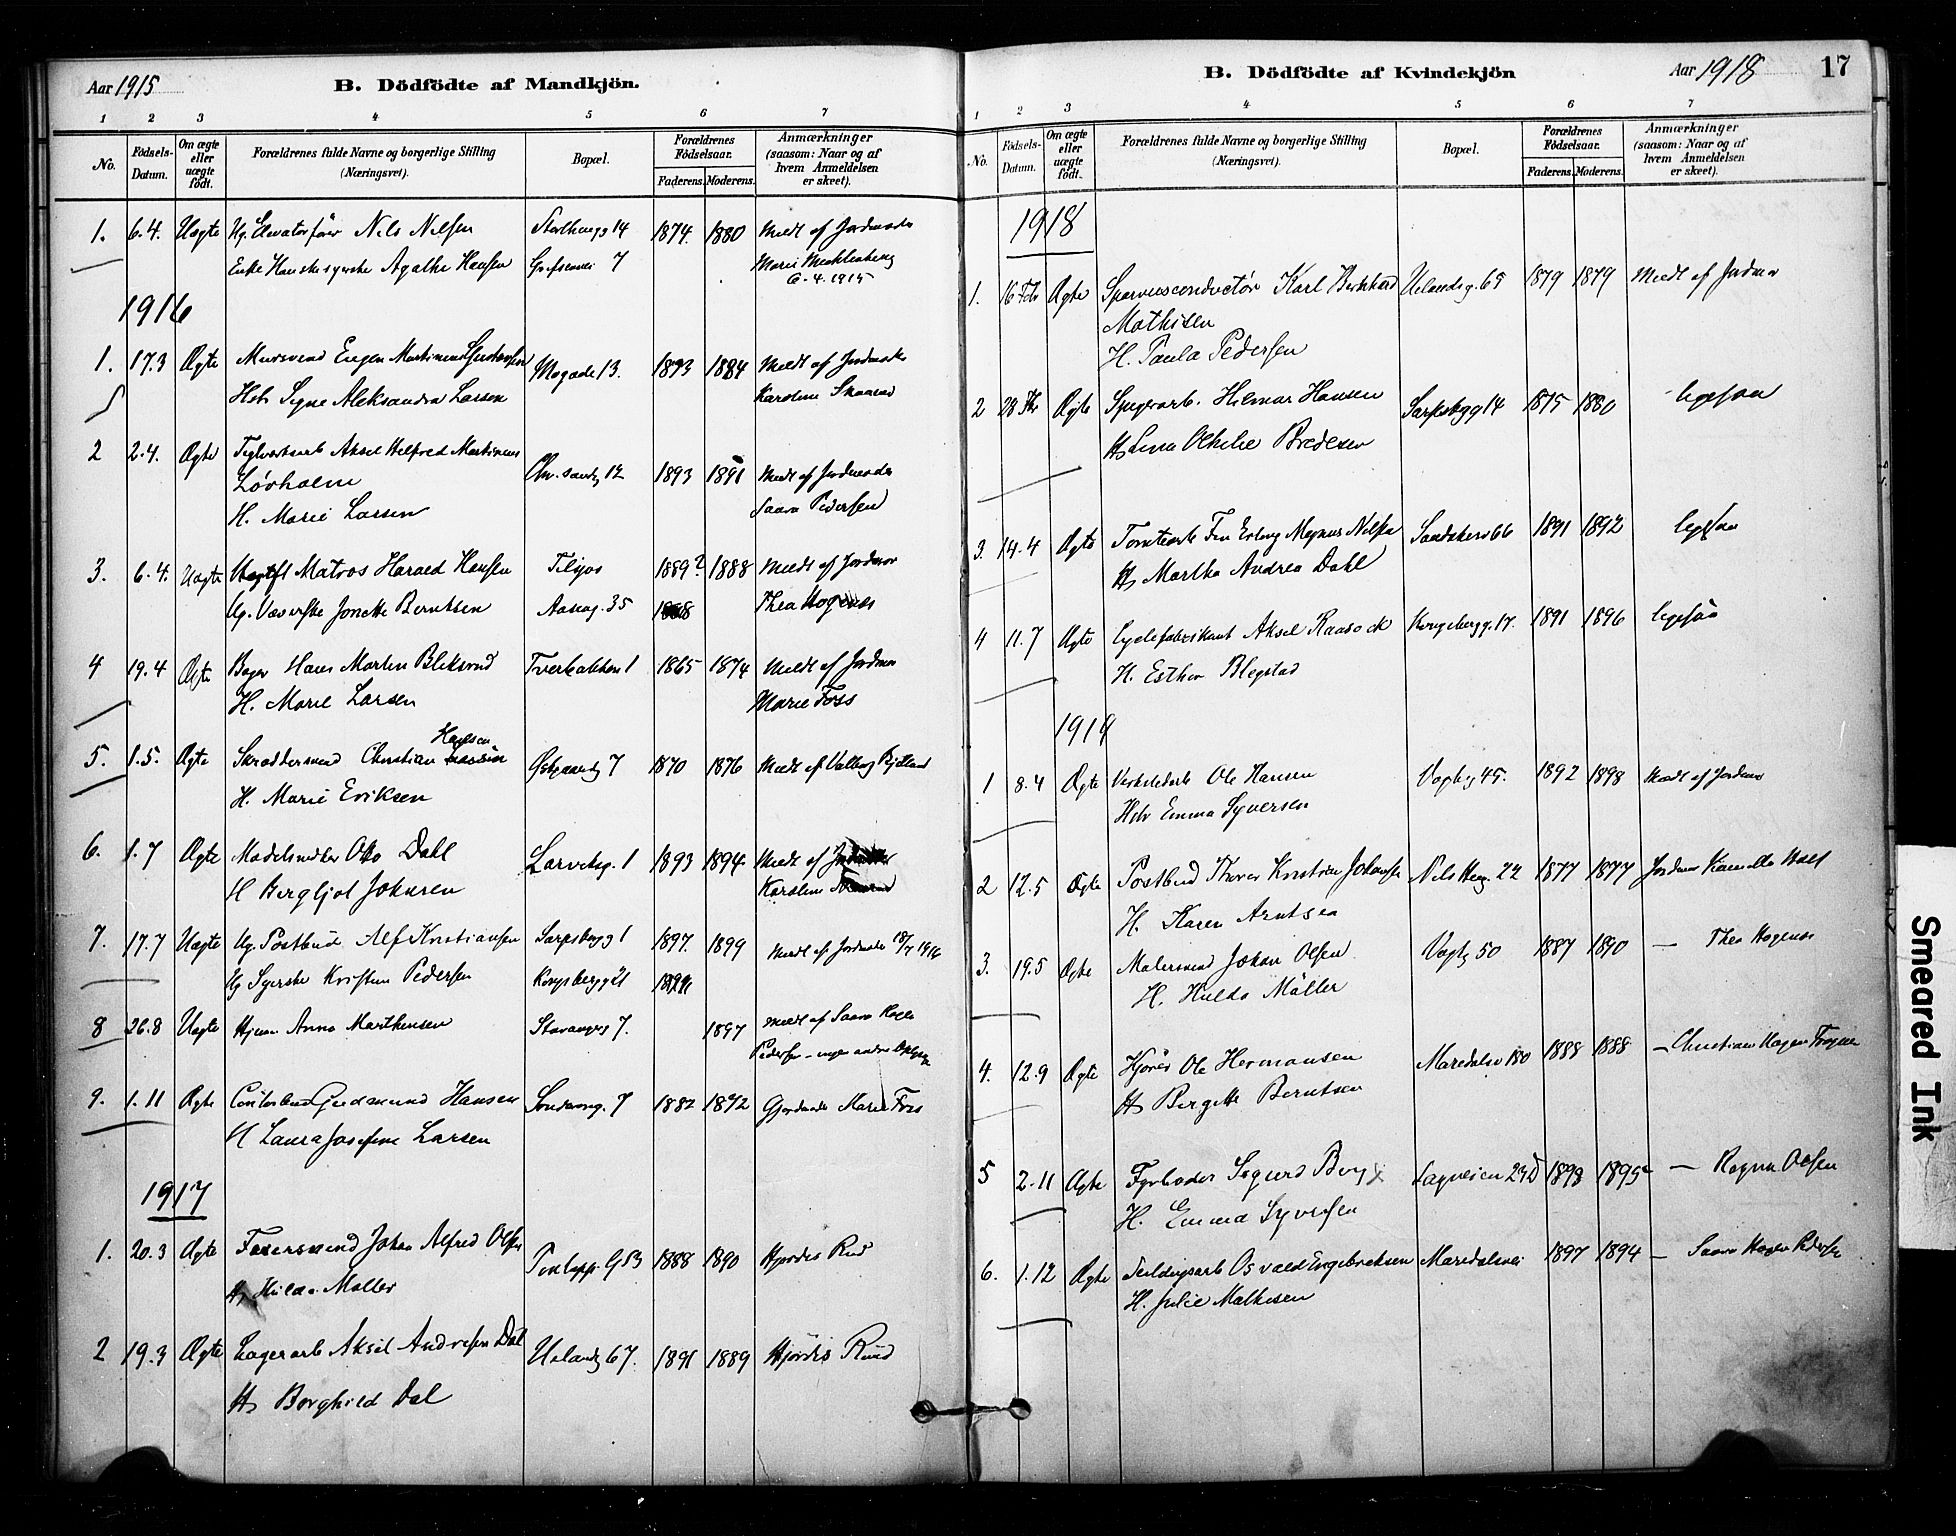 Aar 1915
B. Dödfödte af Mandkjön.
1 2 3 4 5 6 7
No.
Födsels-Datum.
Om ægte eller uægte født.
Forældrenes fulde Navne og borgerlige Stilling
(Næringsvei).
Bopæl.
Forældrenes Födselsaar.
Faderens. Moderens.
Anmærkninger
(saasom: Naar og af
hvem Anmeldelsen
er skeet).
1. 6.4. Uægte Ug. Elevatorfører Nils Nilsen 14 1874. 1880 Meldt af Jordmoder
Enke Agathe Hansen 7 Marie Mecklenborg
6.4.1915
1916
1. 17.3 Ægte Mursvend Eugen Martinius Gustavsen 13. 1893 1884 Meldt af Jordmoder
Hstr Signe Aleksandra Larsen Karoline
2 2.4. Ægte Aksel Alfred Martinius 12 1893 1891 Meldt af Jordmoder
Løvholm
H. Marie Larsen Saara Pedersen
3. 6.4. Uægte Matros Harald Hansen Tilsjøs 1889? 1888 Meldt af Jordmor
Ug. Væverske Jonette Berntsen 35 Thea Hogenes
4 19.4 Ægte Bager Hans Martin Bliksrud Tverbakken 1 1865 1874 Meldt af Jordmor
H. Marie Larsen Marie Foss
Hansen
5. 1.5. Ægte Skræddersvend Christian 7 1870 1876 Meldt af
H. Marie Eriksen
6. 1.7 Ægte Modelsnedker Otto Dahl Larviksg. 1 1893 1894. Meldt af
H Bergljot Johnsen Karoline
7. 17.7 Uægte Ug. Postbud Alf Kristiansen Sarpsborgg 1 1897. 1899 Meldt af Jordmoder 18/7 1916
Ug Syerske Kristine Pedersen Kongsbergg 21
8 26.8 Uægte Anna Marthinsen Stavangerg 7. 1897 Meldt af Saara Hagen
Pedersen – ingen andre
9. 1.11 Ægte Contorbud Gudmund Hansen 7 1882 1892 Gjordmoder Marie Foss
H Laura Josefine Larsen
1917
1. 20.3 Ægte Johan Alfred Olsen 1888 1890 Hjørdis Rud
Hilda Møller
2 19.3 Ægte Lagerarb Aksel Andresen Dal Uelandsg 67. 1891 1889 Hjördis Ruud
H. Borghild Dal
B. Dödfödte af Kvindekjön
Aar 1918
17
1 2 3 4 5 6 7
No.
Födsels-Datum.
Om ægte eller uægte født.
Forældrenes fulde Navne og borgerlige Stilling
(Næringsvei).
Bopæl.
Forældrenes Födselsaar.
Faderens. Moderens.
Anmærkninger
(saasom: Naar og af
hvem Anmeldelsen
er skeet).
1918
1. 16 Feb Ægte Sporveisconductør Karl Bernhard Uelandsg. 65 1879 1879 Meldt af Jordmor
Mathisen
H. Paula Pedersen
2 Ægte Hilmar Hansen Sarpsbgg 14 1875 1880 ligesaa
H. Othilie Bredesen
3 14.4 Ægte Tomtearb Magnus Nilsen 66 1891 1892 ligesaa
H. Martha Andrea Dahl
4 11.7 Ægte Cyclefabrikant Aksel Kongsbergg. 17. 1891 1896 ligesaa
H. Esther Blegstad
1919
1 8.4 Ægte Ole Hansen 45. 1892 1898 Meldt af Jordmor
Hstr Emma Syversen
2 12.5 Ægte Postbud Johansen 22 1877 1877 Jordmor
H. Karen Arntsen
3. 19.5 Ægte Malersvend Johan Olsen 50 1887 1890 — Thea Hogenes
H. Hulda Möller
4. 12.9 Ægte Kjører Ole Hermansen Maridalsv 180 1888 1888 — Christiane Hagen
H. Birgitte Berntsen
5 2.11 Ægte Fyrbøder Sigurd 1898 1895 — Ragna Olsen
H. Emma Syversen
6. 1.12 Ægte Osvald Engebretsen Maridalsvei 1897 1894 — Saara Hagen Pedersen
H. Julie Mathisen
Smeared Ink